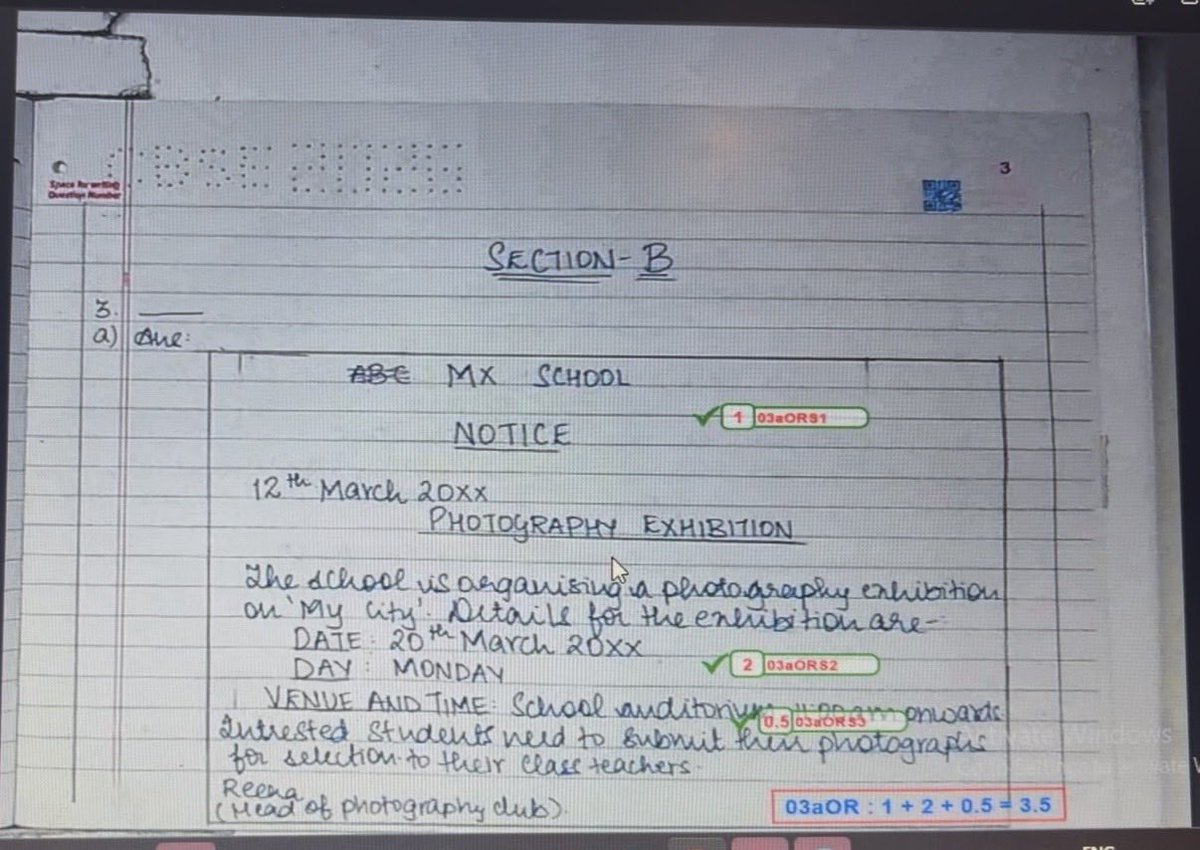 3
Space for writing
Question Number
SECTION - B
3.
a) Ans:
ABC MX SCHOOL
1 03aORS1
NOTICE
12th March 20xx
PHOTOGRAPHY EXHIBITION
The school is organising a photography exhibition
on 'My City'. Details for the exhibition are-
DATE: 20th March 20xx
DAY: MONDAY
2 03aORS2
VENUE AND TIME: School auditorium onwards
0.5 03aORS3
Intrested students need to submit their photographs
for selection to their class teachers.
Reena
(Head of photography club).
03aOR : 1 + 2 + 0.5 = 3.5